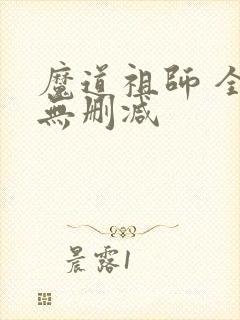 魔道祖師 全
無刪減
晨露1